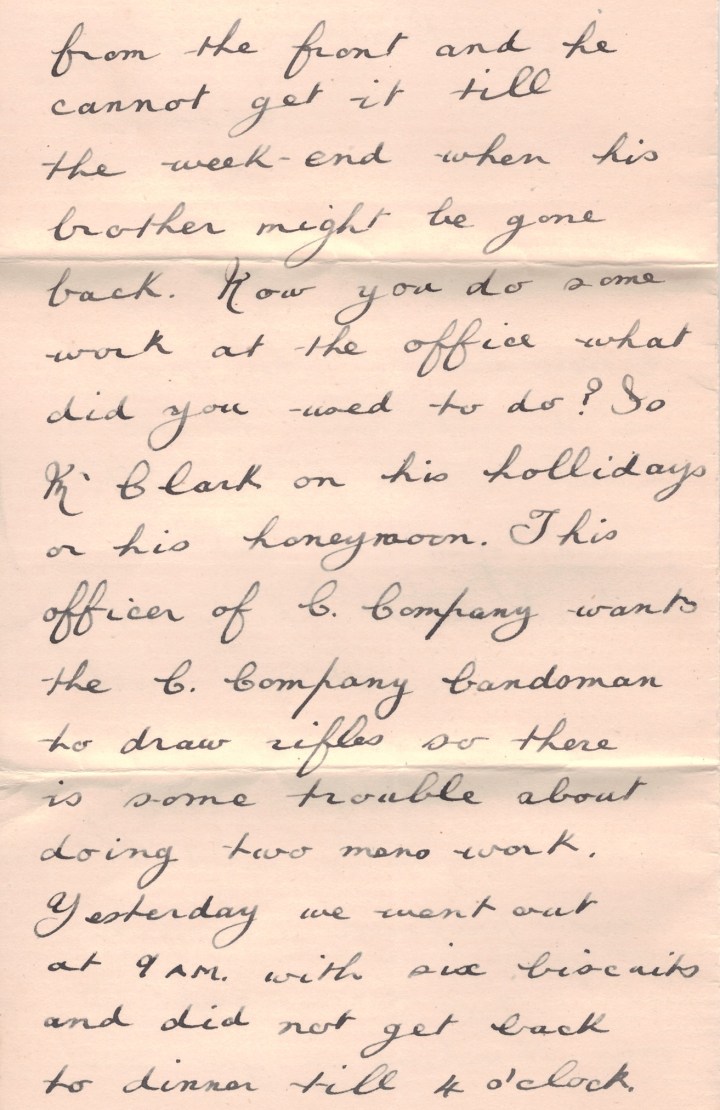 from the front and he
cannot get it till
the week-end when his
brother might be gone
back. Now you do some
work at the office what
did you used to do? Is
K. Clark on his hollidays
or his honeymoon. This
officer of C. Company wants
the C. Company bandsman
to draw rifles so there
is some trouble about
doing two mens work.
Yesterday we went out
at 9 AM. with six biscuits
and did not get back
to dinner till 4 o'clock.